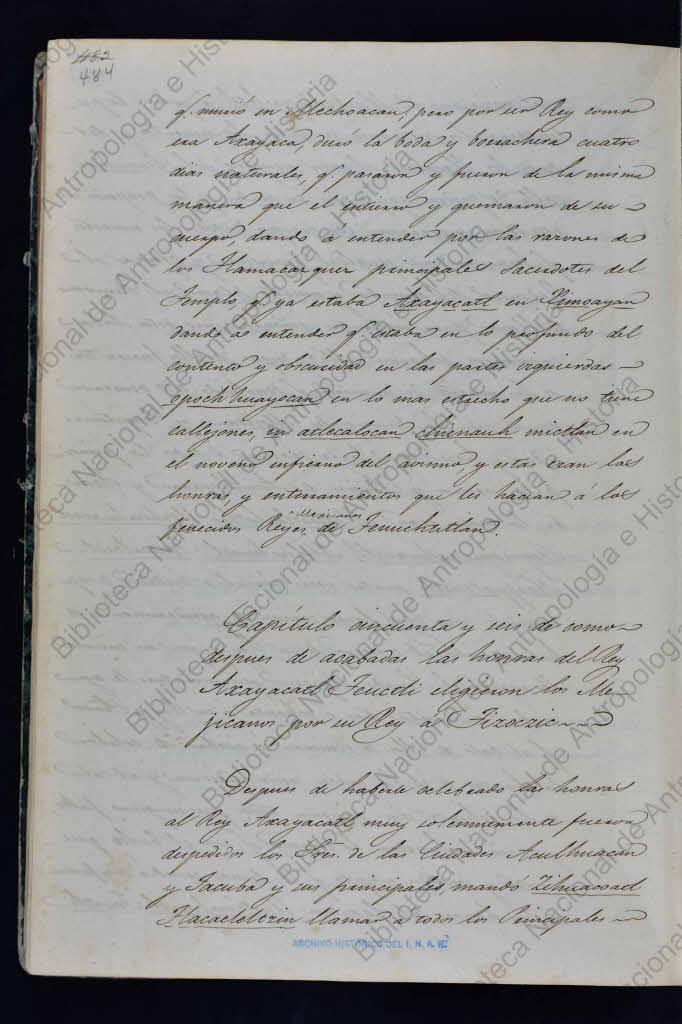 482
484
q.e murió en Mechoacan, pero por ser Rey como
era Axayaca, duró la boda y borrachera cuatro
dias naturales, q.e pasaron y fueron de la misma
manera que el entierro y quemazon de su
cuerpo, dando á entender por las razones de
los Tlamacaz, quez principales Sacerdotes del
Templo q.e ya estaba Axayacatl en Ximoayan
dando as entender q.e estaba en lo profundo del
contento y obscuridad en las partes izquierdas
opoch huayocan en lo mas estrecho que no tiene
callejones, in atlecalocan chicnauh mictlan en
el noveno infierno del avismo, y estas eran las
honras, y enterramientos que les hacian á los
Mexicanos
fenecidos Reyes de Tenuchtitlan.
Capítulo cincuenta y seis de como
despues de acabadas las honras del Rey
Axayacatl Teuctli eligieron los Me-
jicanos por su Rey á Tizoczic
Despues de haberle celebrado las honras
al Rey Axayacatl, muy solemnemente fueron
despedidos los Sres. de las Ciudades Aculhuacan
y Tacuba y sus principales mandó Zihuacoatl
Tlacaeleltzin llamar á todos los Principales
ARCHIVO HISTÓRICO DEL I. N. A. H.
Biblioteca Nacional de Antropología e Historia